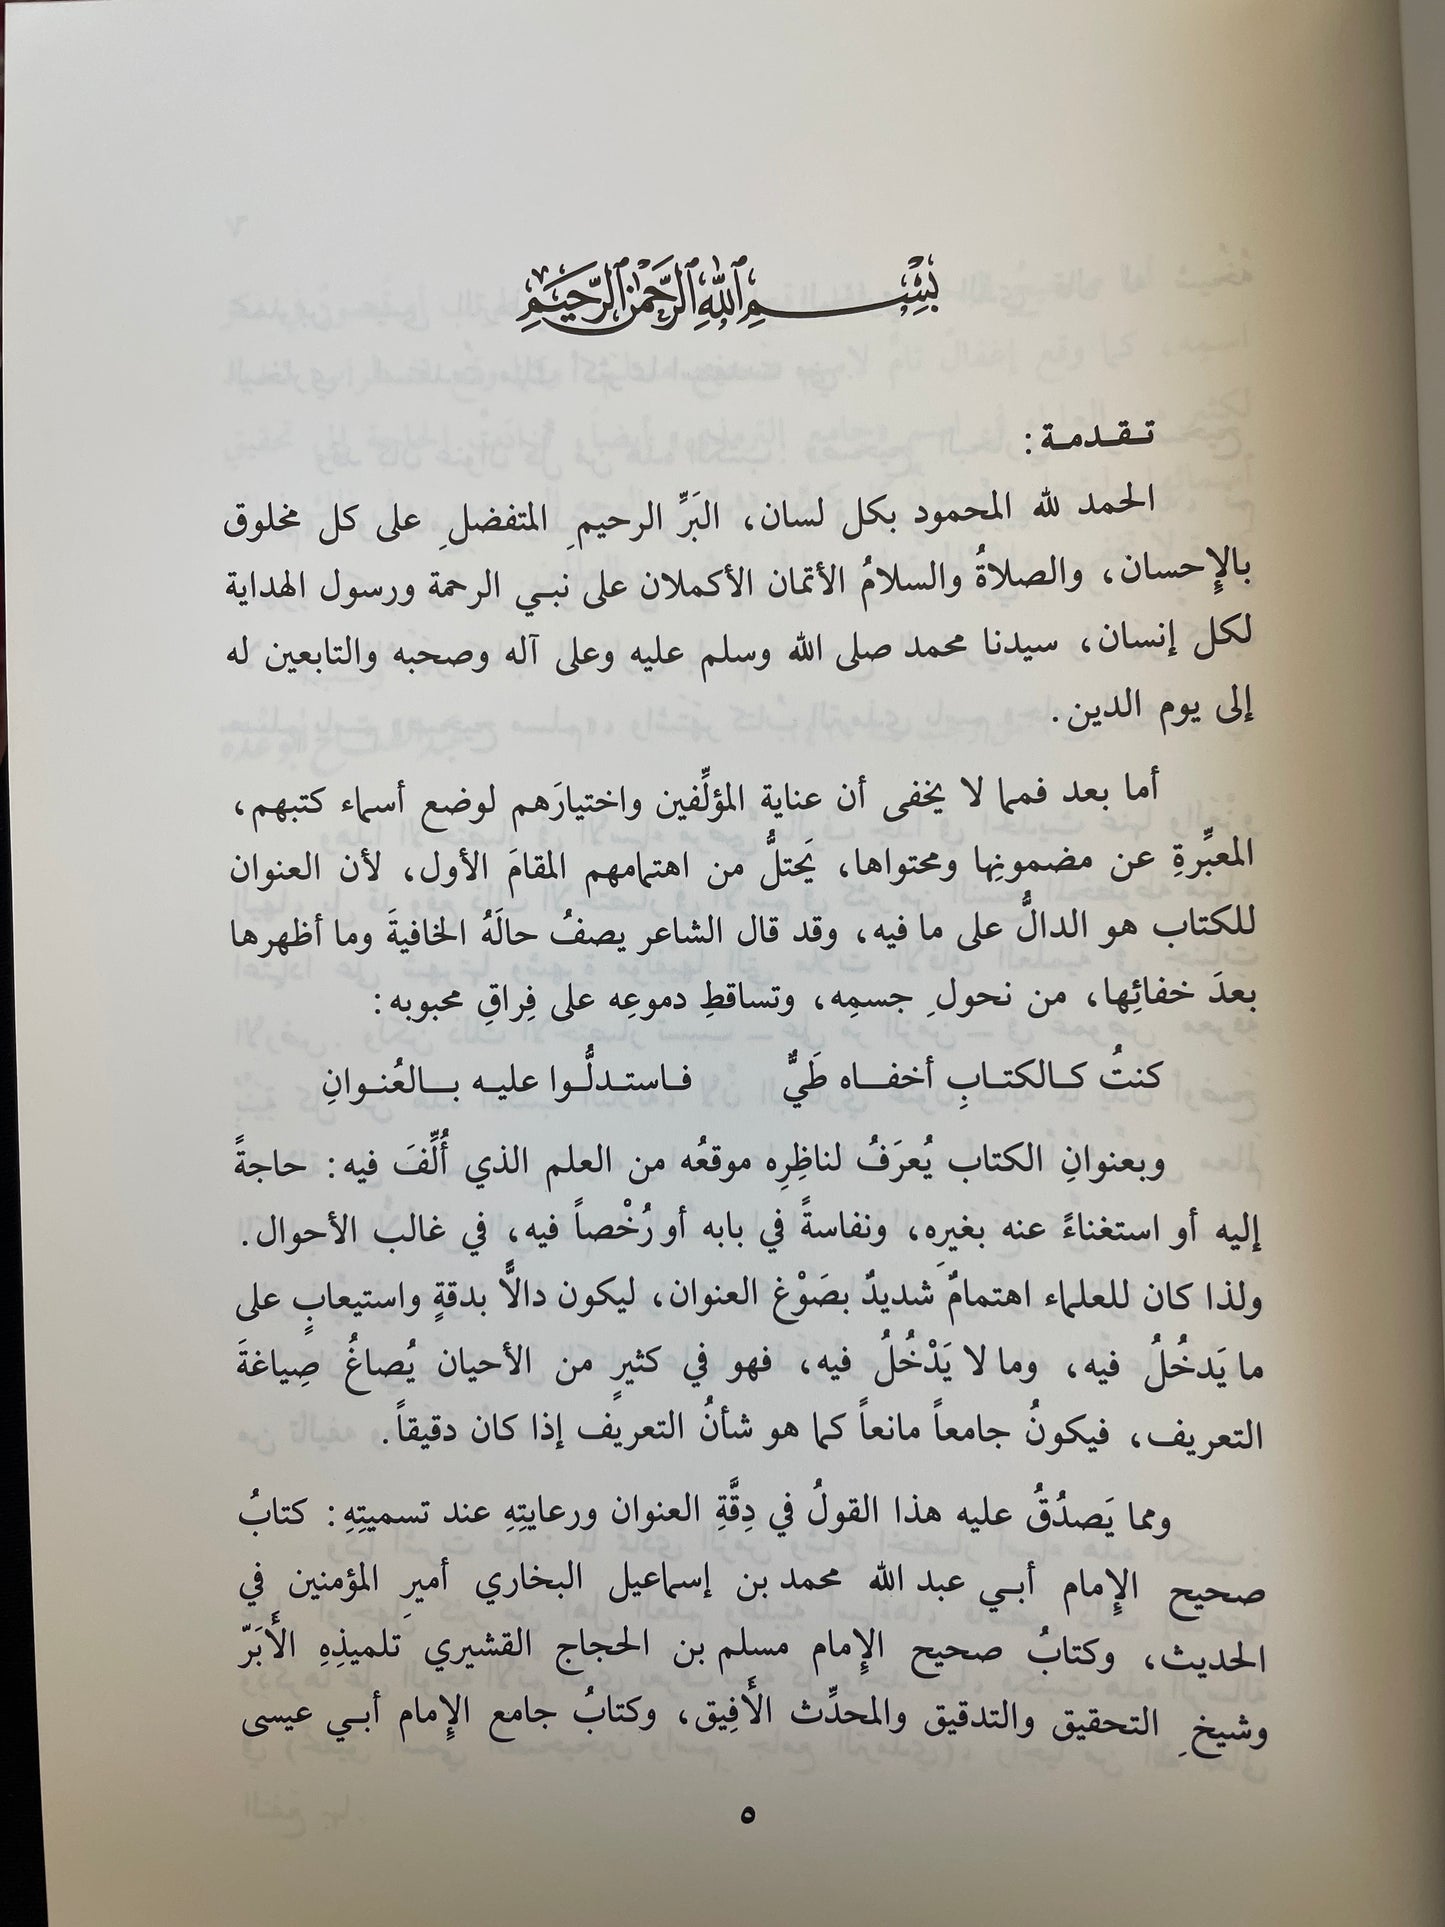 بِسْمِ اللَّهِ الرَّحْمَٰنِ الرَّحِيمِ
تـقـدمـة :
الحمد لله المحمود بكل لسان، البَرِّ الرحيمِ المتفضلِ على كل مخلوق
بالإِحسان، والصلاةُ والسلامُ الأتمان الأكملان على نبـي الرحمة ورسول الهداية
لكل إنسان، سيدنا محمد صلى الله وسلم عليه وعلى آله وصحبه والتابعين له
إلى يوم الدين.
أما بعد فمما لا يخفى أن عناية المؤلِّفين واختيارَهم لوضع أسماء كتبهم،
المعبِّرةِ عن مضمونِها ومحتواها، يَحتلُّ من اهتمامهم المقامَ الأول، لأن العنوان
للكتاب هو الدالُّ على ما فيه، وقد قال الشاعر يصفُ حالَهُ الخافيةَ وما أظهرها
بعدَ خفائِها، من نحولِ جسمِه، وتساقطِ دموعِه على فِراقِ محبوبه:
كنتُ كـالكتـابِ أخفـاه طَيٌّ فـاستـدلُّـوا عليـه بـالعُنـوانِ
وبعنوانِ الكتاب يُعرَفُ لناظِرِه موقعُه من العلم الذي أُلِّفَ فيه: حاجةً
إليه أو استغناءً عنه بغيرِه، ونفاسةً في بابه أو رُخْصاً فيه، في غالب الأحوال.
ولذا كان للعلماء اهتمامٌ شديدٌ بصَوْغ العنوان، ليكون دالًّا بدقةٍ واستيعابٍ على
ما يَدخُلُ فيه، وما لا يَدْخُلُ فيه، فهو في كثيرٍ من الأحيان يُصاغُ صِياغةَ
التعريف، فيكونُ جامعاً مانعاً كما هو شأنُ التعريف إذا كان دقيقاً.
ومما يَصدُقُ عليه هذا القولُ في دِقَّةِ العنوان ورعايتِهِ عند تسميتِهِ: كتابُ
صحيح الإِمام أبـي عبد الله محمد بن إسماعيل البخاري أميرِ المؤمنين في
الحديث، وكتابُ صحيح الإِمام مسلم بن الحجاج القشيري تلميذِهِ الأَبَرّ
وشيخِ التحقيق والتدقيق والمحدِّث الأَفِيق، وكتابُ جامع الإِمام أبـي عيسى
٥